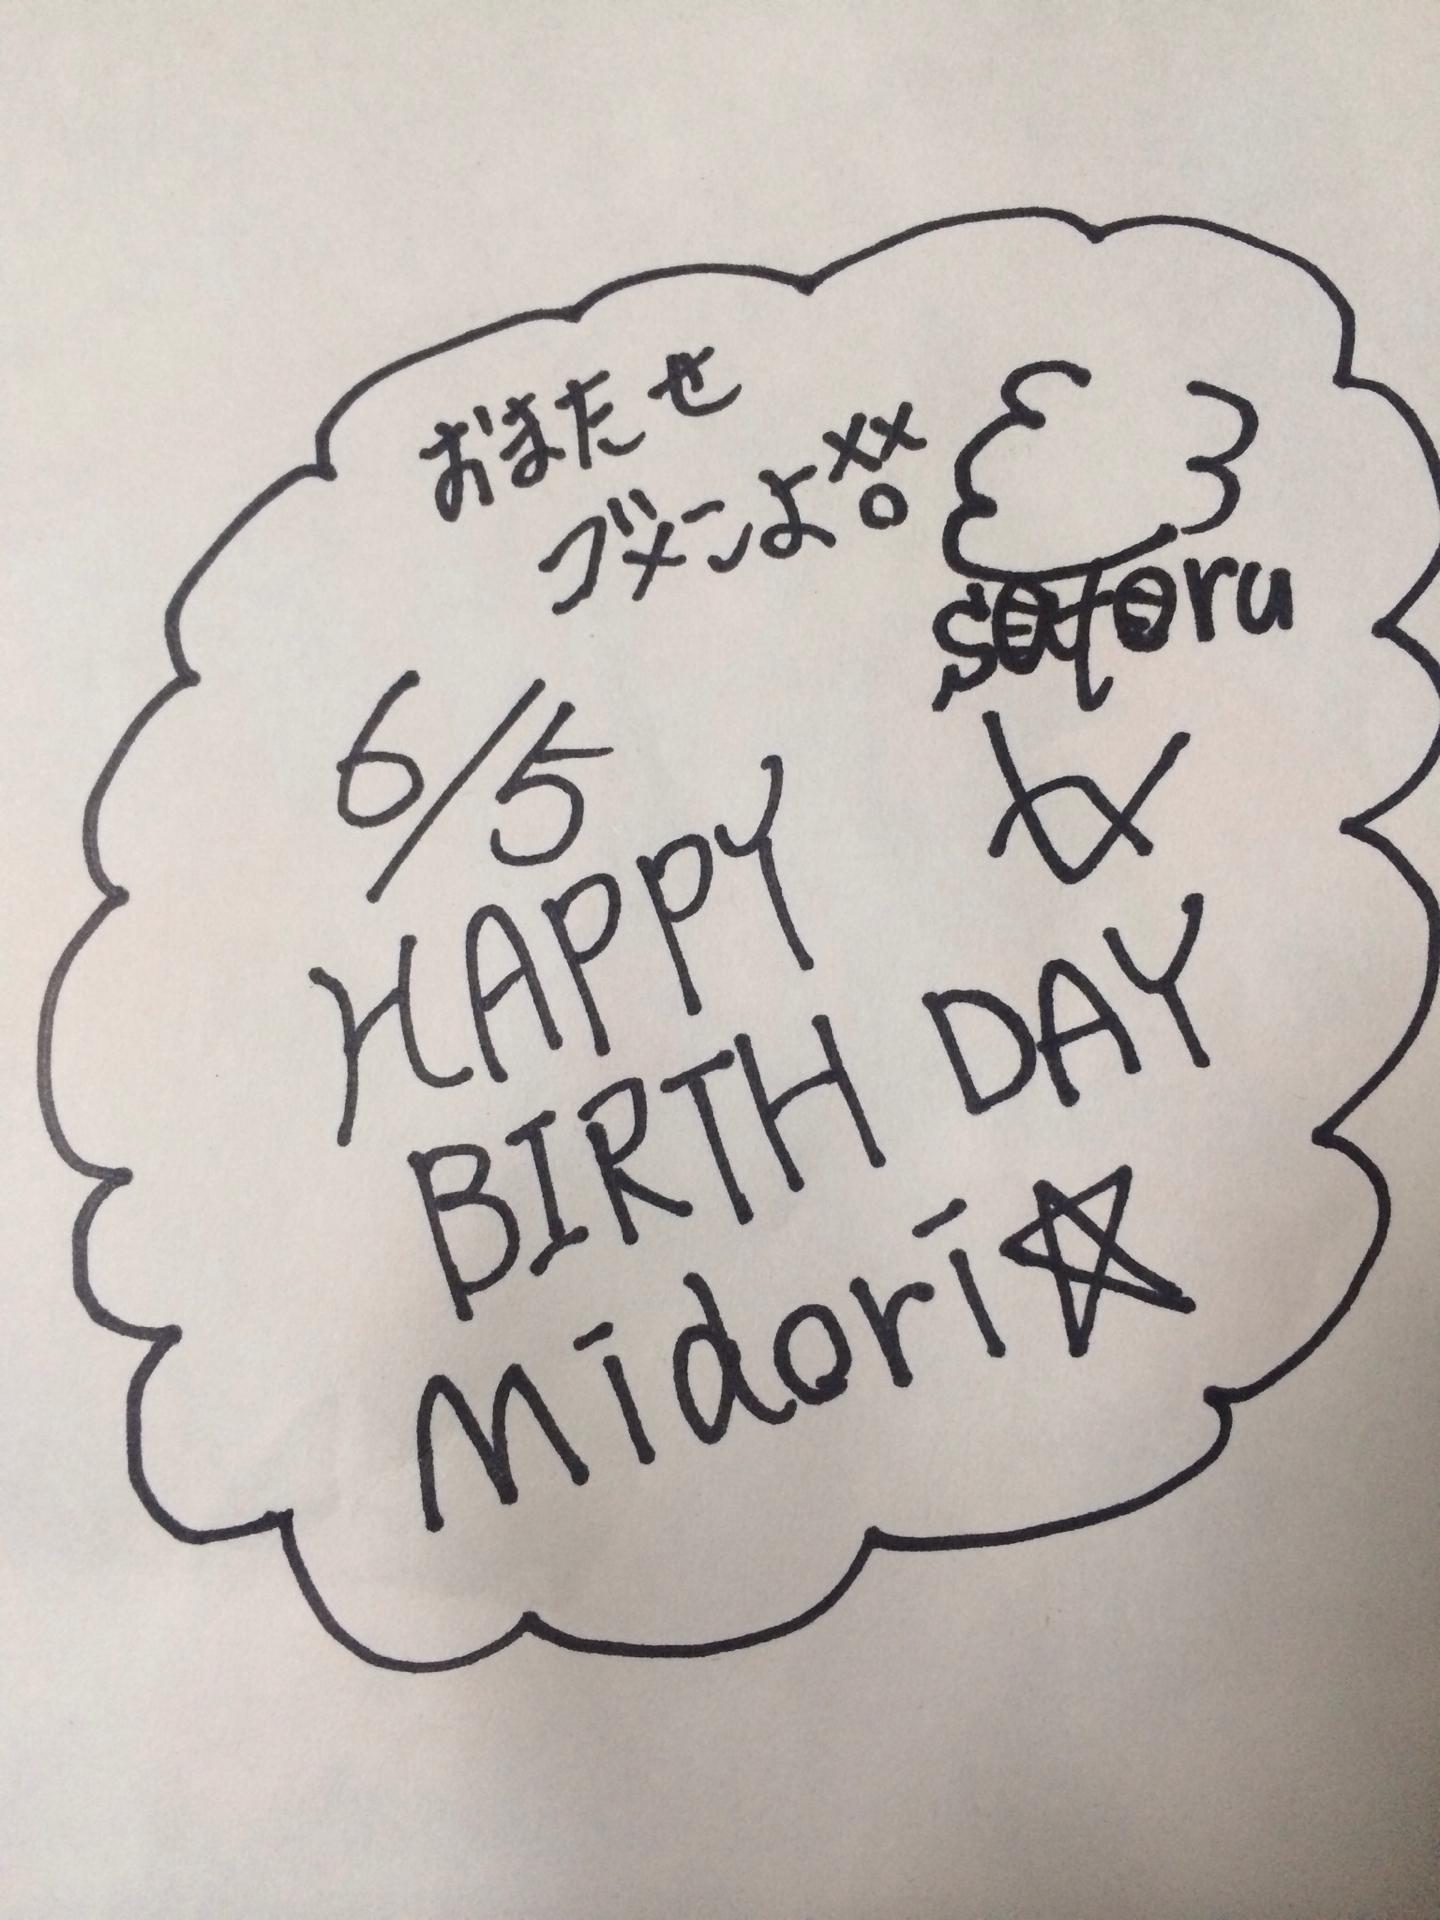 おまたせ
ゴメンよ
satoru
6/5
HAPPY
BIRTH DAY
Midori☆